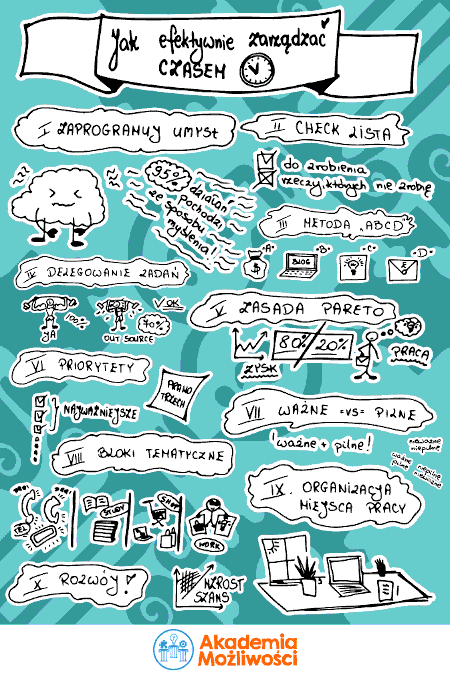 Jak efektywnie zarządzać
CZASEM
I ZAPROGRAMUJ UMYSŁ
II CHECK LISTA
do zrobienia
rzeczy, których nie zrobię
95%
działań
pochodzi
ze sposobu
myślenia!
III METODA "ABCD"
"A"
"B"
"C"
"D"
BLOG
IV DELEGOWANIE ZADAŃ
JA
100%
OUT SOURCE
OK
70%
V ZASADA PARETO
80% / 20%
ZYSK
PRACA
VI PRIORYTETY
NAJWAŻNIEJSZE
PRAWO
TRZECH
VII WAŻNE =VS= PILNE
!ważne + pilne!
nieważne
niepilne
ważne niepilne
pilne nieważne
VIII BLOKI TEMATYCZNE
TEL
STUDY
SHOP
WORK
IX. ORGANIZACJA
MIEJSCA PRACY
X ROZWÓJ!
WZROST
SZANS
Akademia
Możliwości